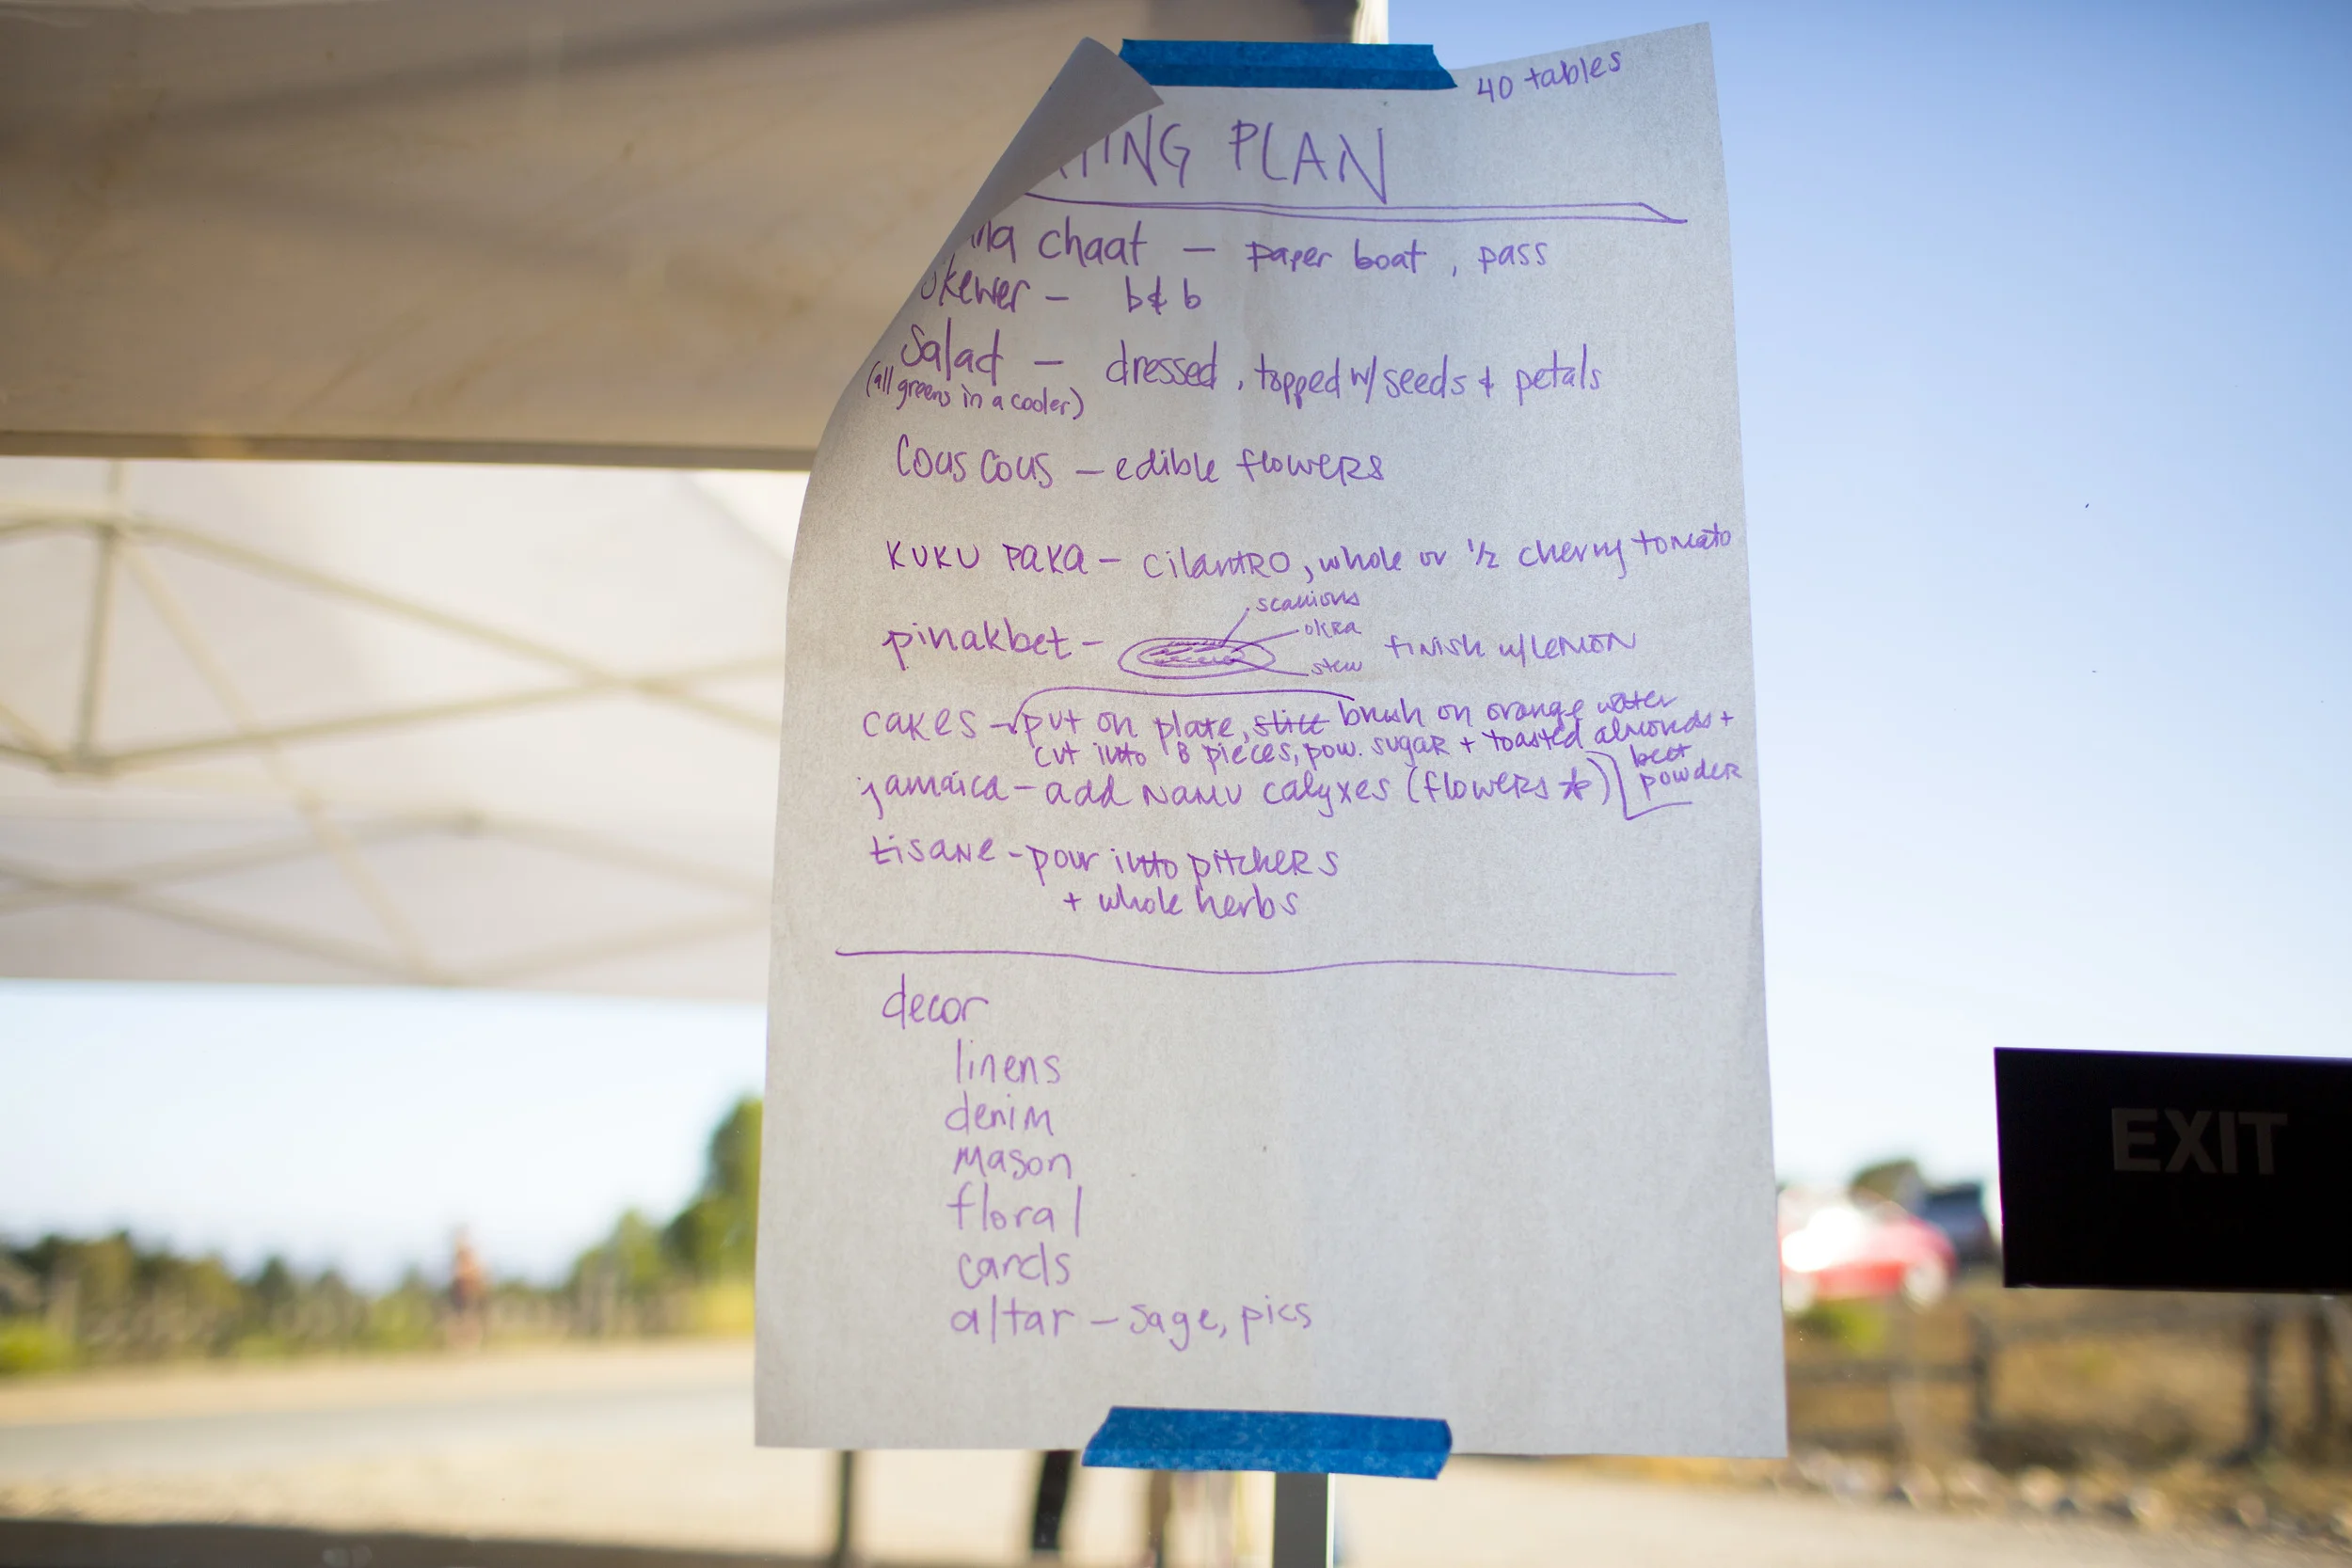 40 tables
PLAN
chaat – paper boat, pass
skewer – b & b
Salad – dressed, topped w/ seeds & petals
(all greens in a cooler)
Cous Cous – edible flowers
KUKU PAKA – cilantro, whole or 1/2 cherry tomato
scallions
okra
pinakbet – finish w/ LEMON
stew
cakes – put on plate, slice brush on orange water
cut into 8 pieces, pow. sugar + toasted almonds +
beet
powder
jamaica – add NAMU calyxes (flowers *)
tisane – pour into pitchers
+ whole herbs
decor
linens
denim
mason
floral
cards
altar – sage, pics
EXIT